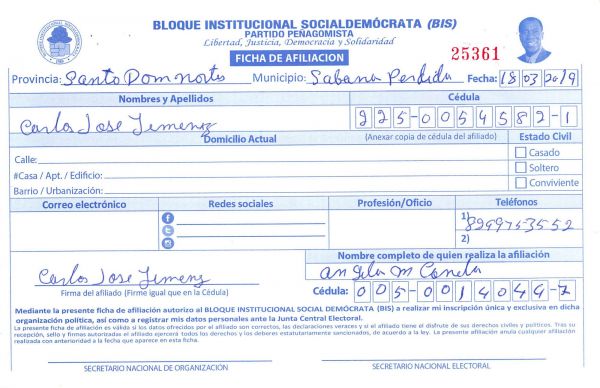 BLOQUE INSTITUCIONAL SOCIALDEMÓCRATA (BIS)
PARTIDO PEÑAGOMISTA
Libertad, Justicia, Democracia y Solidaridad
FICHA DE AFILIACION
25361
Provincia: Santo Dom norte Municipio: Sabana Perdida Fecha: 18 03 2019
Nombres y Apellidos Cédula
Carlos Jose Jimenez 225-0054582-1
Domicilio Actual (Anexar copia de cédula del afiliado) Estado Civil
Calle: Casado
#Casa / Apt. / Edificio: Soltero
Barrio / Urbanización: Conviviente
Correo electrónico Redes sociales Profesión/Oficio Teléfonos
1) 8299753552
2)
Nombre completo de quien realiza la afiliación
Carlos Jose Jimenez angela m
Firma del afiliado (Firme igual que en la Cédula) Cédula: 005-0014044-7
Mediante la presente ficha de afiliación autorizo al BLOQUE INSTITUCIONAL SOCIAL DEMÓCRATA (BIS) a realizar mi inscripción única y exclusiva en dicha
organización política, así como a registrar mis datos personales ante la Junta Central Electoral.
La presente ficha de afiliación es válida si los datos ofrecidos por el afiliado son correctos, las declaraciones veraces y si el afiliado tiene el disfrute de sus derechos civiles y políticos. Tras su
recepción, sello y firmas autorizadas el afiliado ejercerá todos los derechos y los deberes estatutariamente sancionados, de acuerdo a la ley. La presente afiliación anula cualquier afiliación
realizada con anterioridad a la fecha que aparece en esta ficha.
SECRETARIO NACIONAL DE ORGANIZACIÓN SECRETARIO NACIONAL ELECTORAL